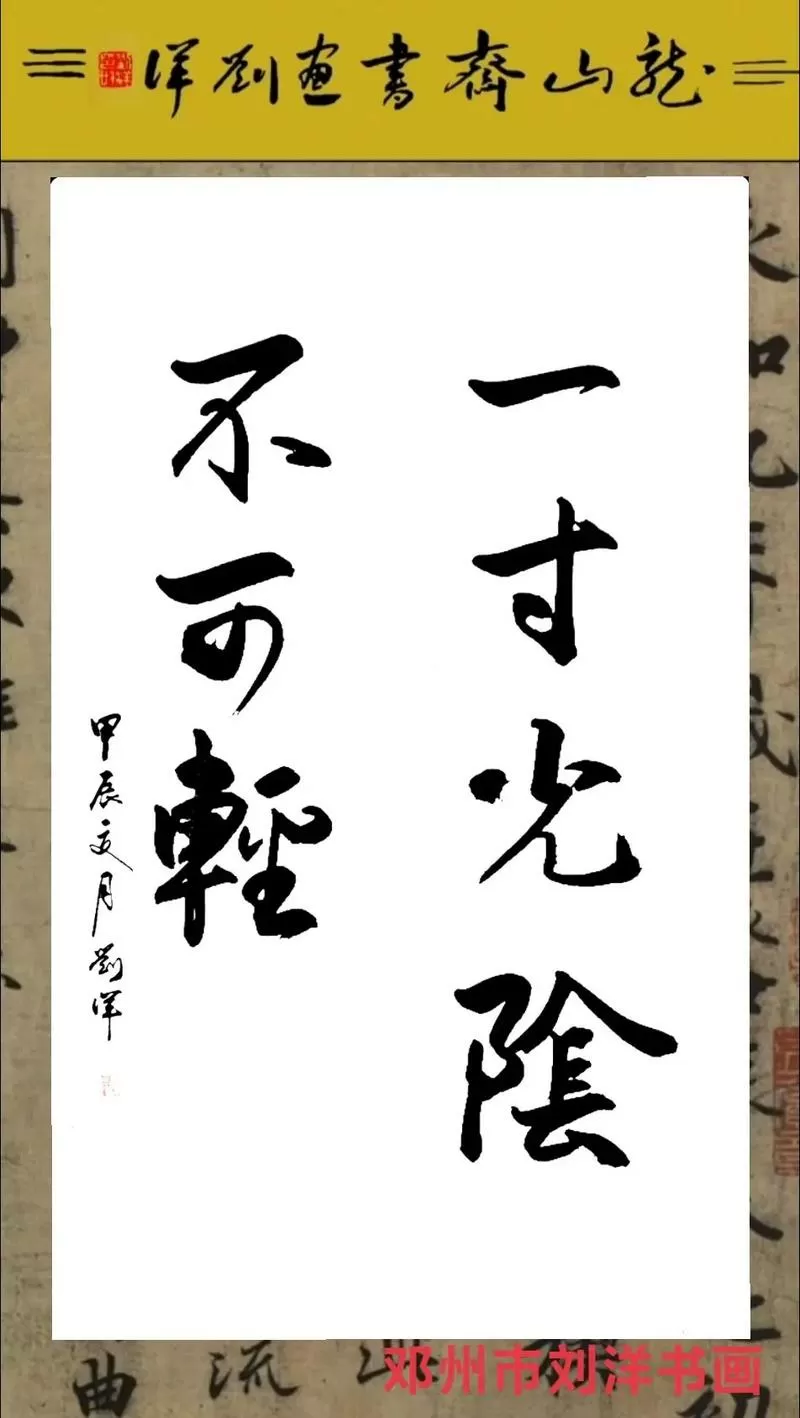 龍山齋書畫劉洋
一寸光陰
不可輕
甲辰文月劉洋
邓州市刘洋书画
曲
流
初